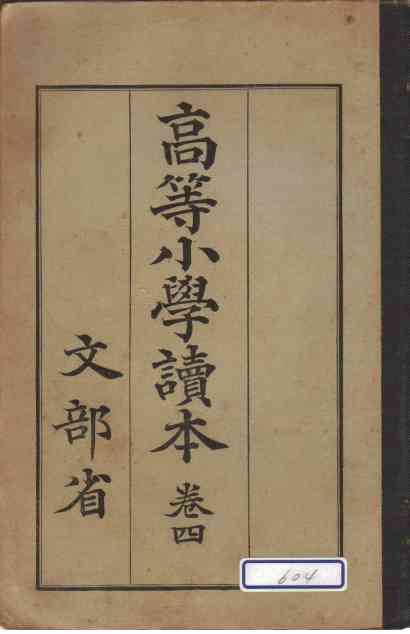 高等小學讀本 卷四
文部省
604